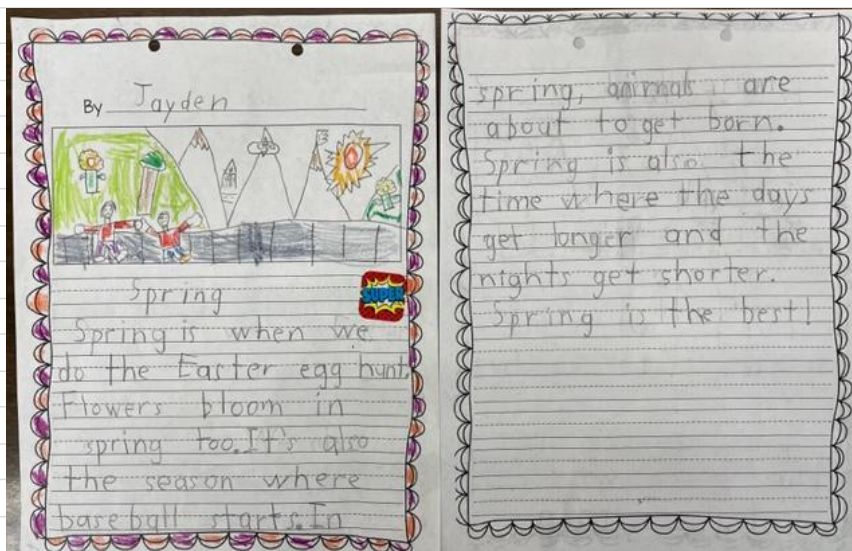 By Jayden
Spring
SUPER
Spring is when we
do the Easter egg hunt.
Flowers bloom in
spring too. It's also
the season where
baseball starts. In
spring, animals are
about to get born.
Spring is also the
time where the days
get longer and the
nights get shorter.
Spring is the best!